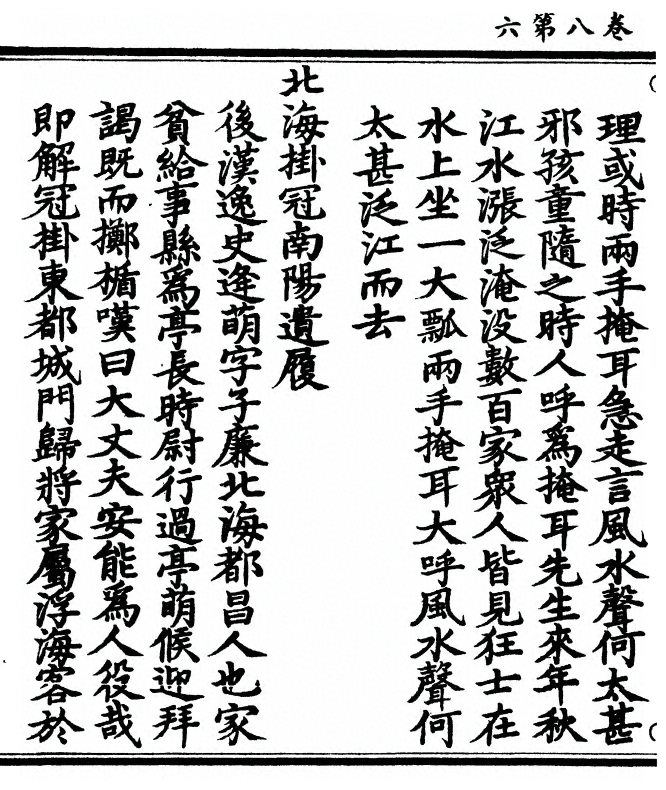 卷八第六
理或時兩手掩耳急走言風水聲何太甚
邪孩童隨之時人呼爲掩耳先生來年秋
江水漲泛淹没數百家衆人皆見狂士在
水上坐一大瓢兩手掩耳大呼風水聲何
太甚泛江而去
北海掛冠南陽遺履
後漢逸史逄萌字子廉北海都昌人也家
貧給事縣爲亭長時尉行過亭萌候迎拜
謁既而擲楯嘆曰大丈夫安能爲人役哉
即解冠掛東都城門歸將家屬浮海客於